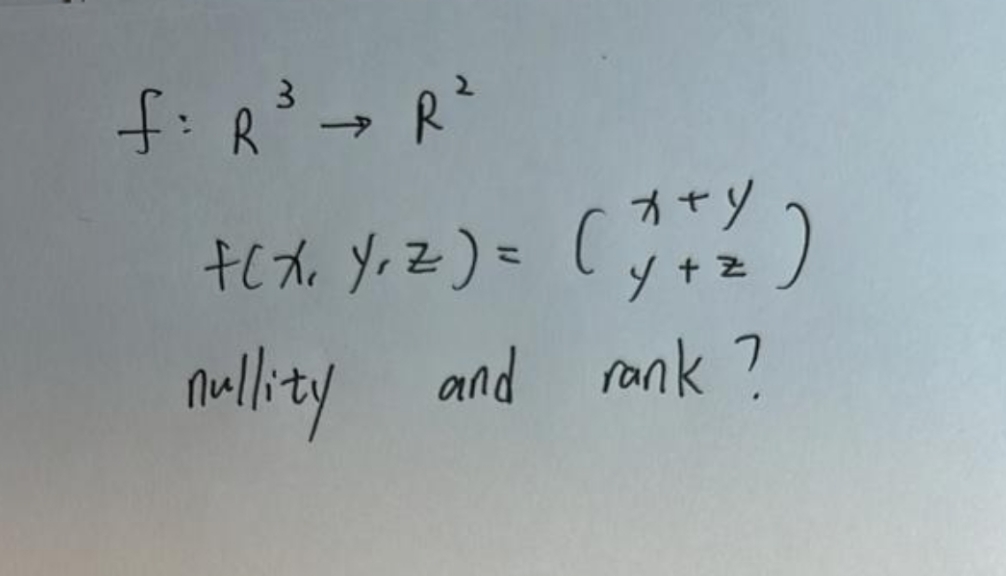 f: R³ → R²
f(x, y, z) = (x + y
y + z)
nullity and rank?